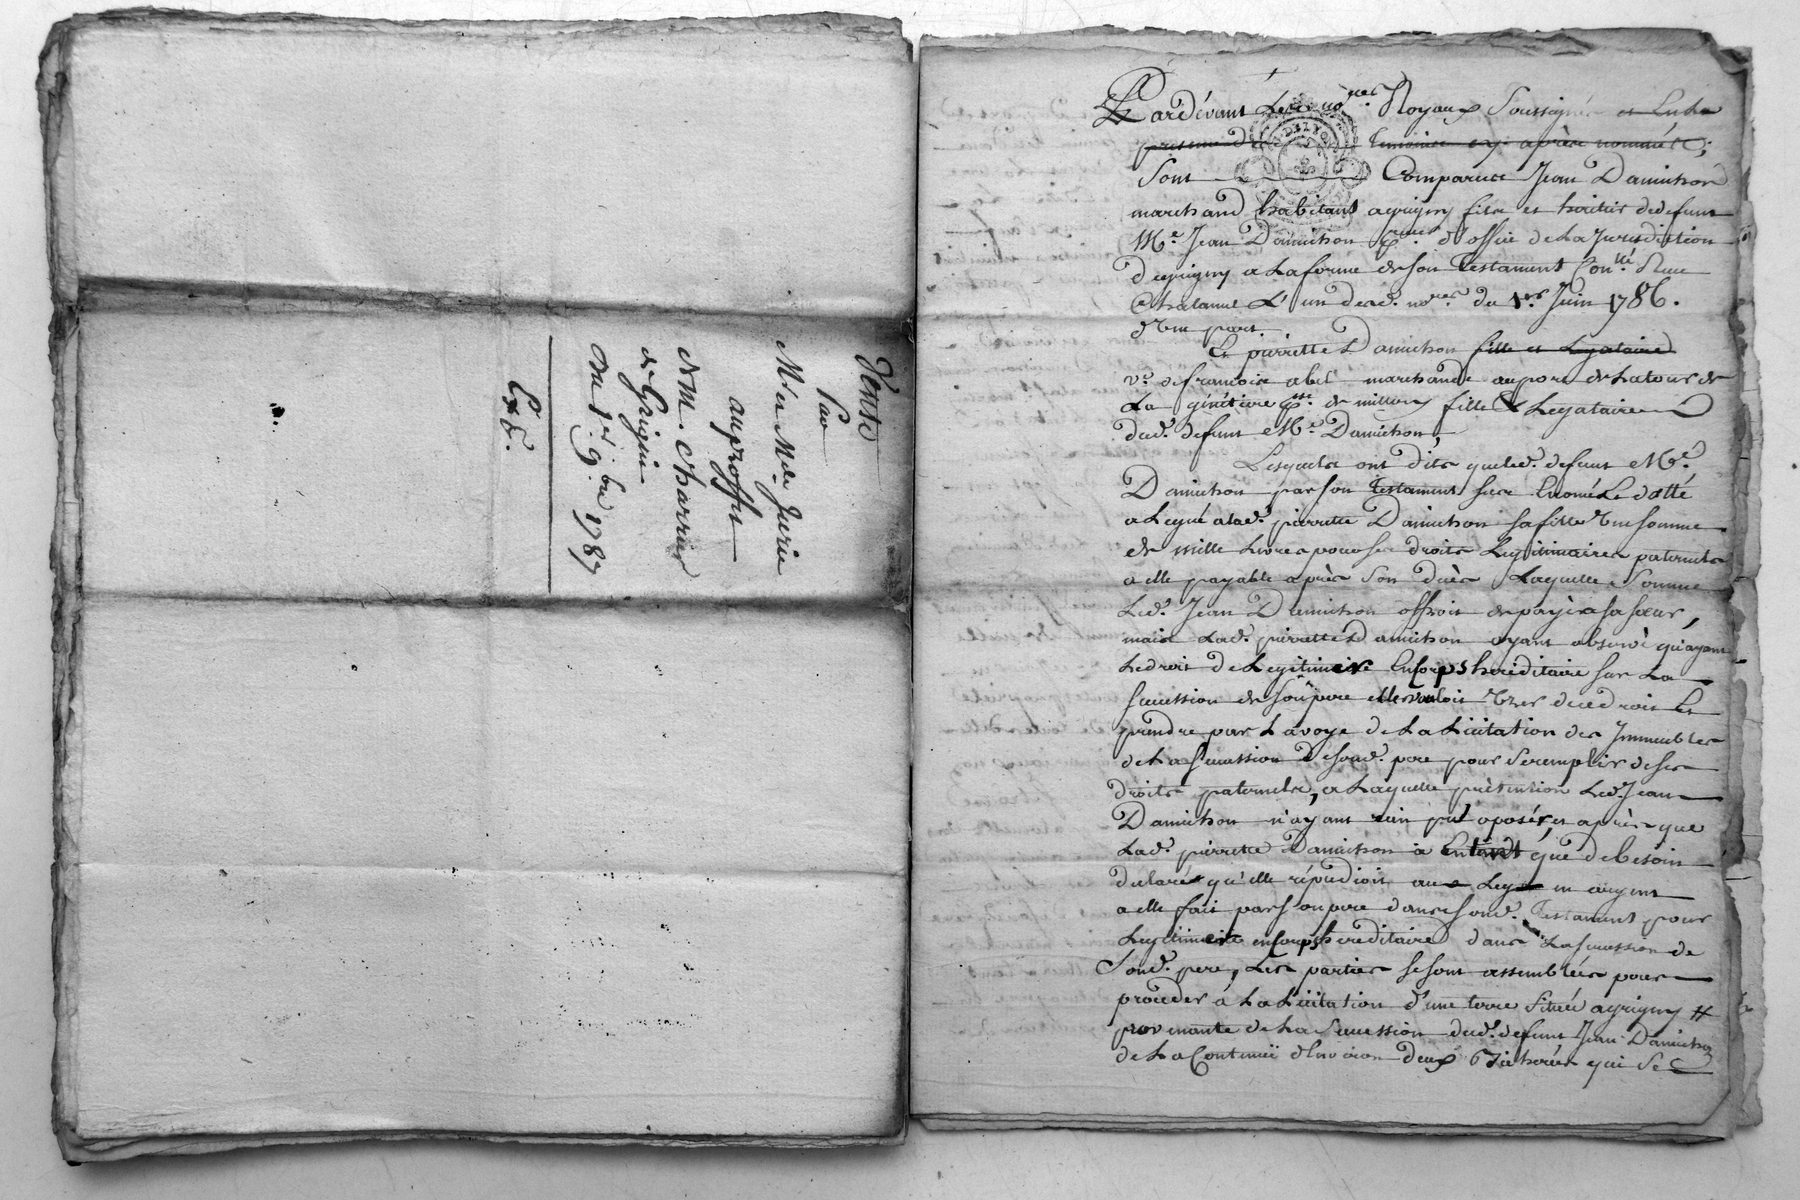 Vente
Par
Mr et Mde Jurie
au proffit
de M. Charrier
de Grigni
du 1er. 9bre 1787
Exp.
Pardevant Les no.res Royaux Soussignés et En la
presence des temoins cy après nommés;
Sont Comparus Jean Damichon
marchand habitant agrigny fils et heritier dedefunt
Me. Jean Damichon d'office de La Jurisdiction
degrigny a La forme de son Testament
L'un desd. no.res du 1er. Juin 1786.
d'Une part.
Et pierrette Damichon fille et Legataire
ve. de francois abel marchande au port de La tour de
La de millery fille & Legataire
dud. defunt Me. Damichon,
Lesquels ont dits que led. defunt Me.
Damichon par son Testament sus Enoncé Et datté
a Legué a lad. pierrette Damichon sa fille Une somme
de mille Livres pour ses droits Legitimaires paternels
a elle payable après son décès Laquelle Somme
Led. Jean Damichon offroit de payer a sa sœur,
mais Lad. pierrette Damichon ayant observé qu'ayant
Le droit de Legitimaire En Corps hereditaire sur La
succession de son pere elle vouloit User de ce droit Et
prendre par La voye de La Licitation des Immeubles
de La Succession de sond. pere pour Se remplir de ses
droits paternels, a Laquelle prétention Led. Jean
Damichon n'ayant rien pu oposér, et après que
Lad. pierrette Damichon a En tant que de besoin
declaré qu'elle répudioit au Legs en argent
a elle fait par son pere dans sond. Testament pour
Legitimaire en Corps hereditaire dans La succession de
Sond. pere, Les parties se sont assemblées pour
procéder a La Licitation d'une terre Située a grigny #
provenante de La Succession dud. defunt Jean Damichon
de La Contenuë d'Environ deux Bicherées qui Se